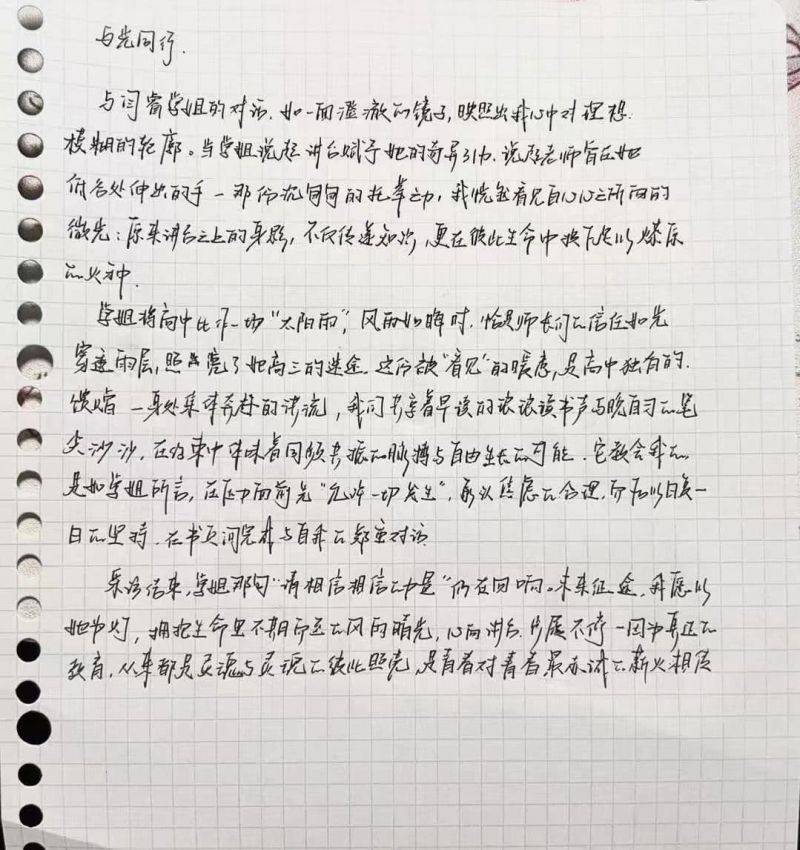 与光同行.
与闫睿学姐的对话,如一面澄澈的镜子,映照出我心中对理想
模糊的轮廓。当学姐说起讲台赋予她的奇异引力,说起老师曾在她
低谷处伸出的手—那份沉甸甸的托举之力,我恍然看见自己心之所向的
微光:原来讲台之上的身影,不仅传递知识,更在彼此生命中按下足以燎原
的火种.
学姐将高中比作一场"太阳雨",风雨如晦时.恰是师长们的信任如光
穿透雨层,照亮了她高三的迷途.这份被"看见"的暖意,是高中独有的.
馈赠—身处集体奔赴的洪流,我们共享着早读的琅琅读书声与晚自习的笔
尖沙沙,在约束中体味着同频共振的脉搏与自由生长的可能.它教会我的
是如学姐所言,在压力面前先"允许一切发生",承认焦虑的合理,而后以日复一
日的坚持,在书页间完成与自我的郑重对话
采访结束,学姐那句"请相信相信的力量"仍在回响。未来征途,我愿以
她为灯,拥抱生命里不期而至的风雨晴光,心向讲台.步履不停—因为真正的
教育,从来都是灵魂与灵魂的彼此照亮,是青春对青春最赤诚的薪火相传